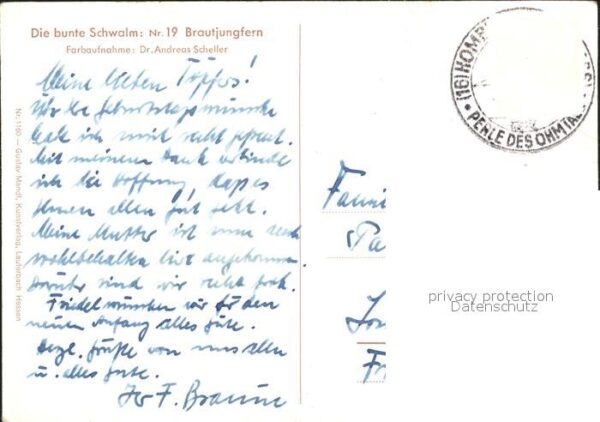 Die bunte Schwalm: Nr. 19 Brautjungfern
Farbaufnahme: Dr. Andreas Scheller
Meine lieben Töpfers!
Für die Geburtstagswünsche
habe ich mich recht gefreut.
Mit meinem Dank verbinde
ich die Hoffnung, dass es
Ihnen allen gut geht.
Meine Mutter ist nun auch
wohlbehalten hier angekommen
darüber sind wir recht froh.
Friedel wünschen wir für den
neuen Anfang alles Gute.
Herzl. Grüße von uns allen
u. alles Gute.
Ihr F. Braune
Nr. 1160 — Gustav Mandt, Kunstverlag, Lauterbach Hessen
(16) HOMB
PERLE DES OHMTA
Fami
Fr
privacy protection
Datenschutz